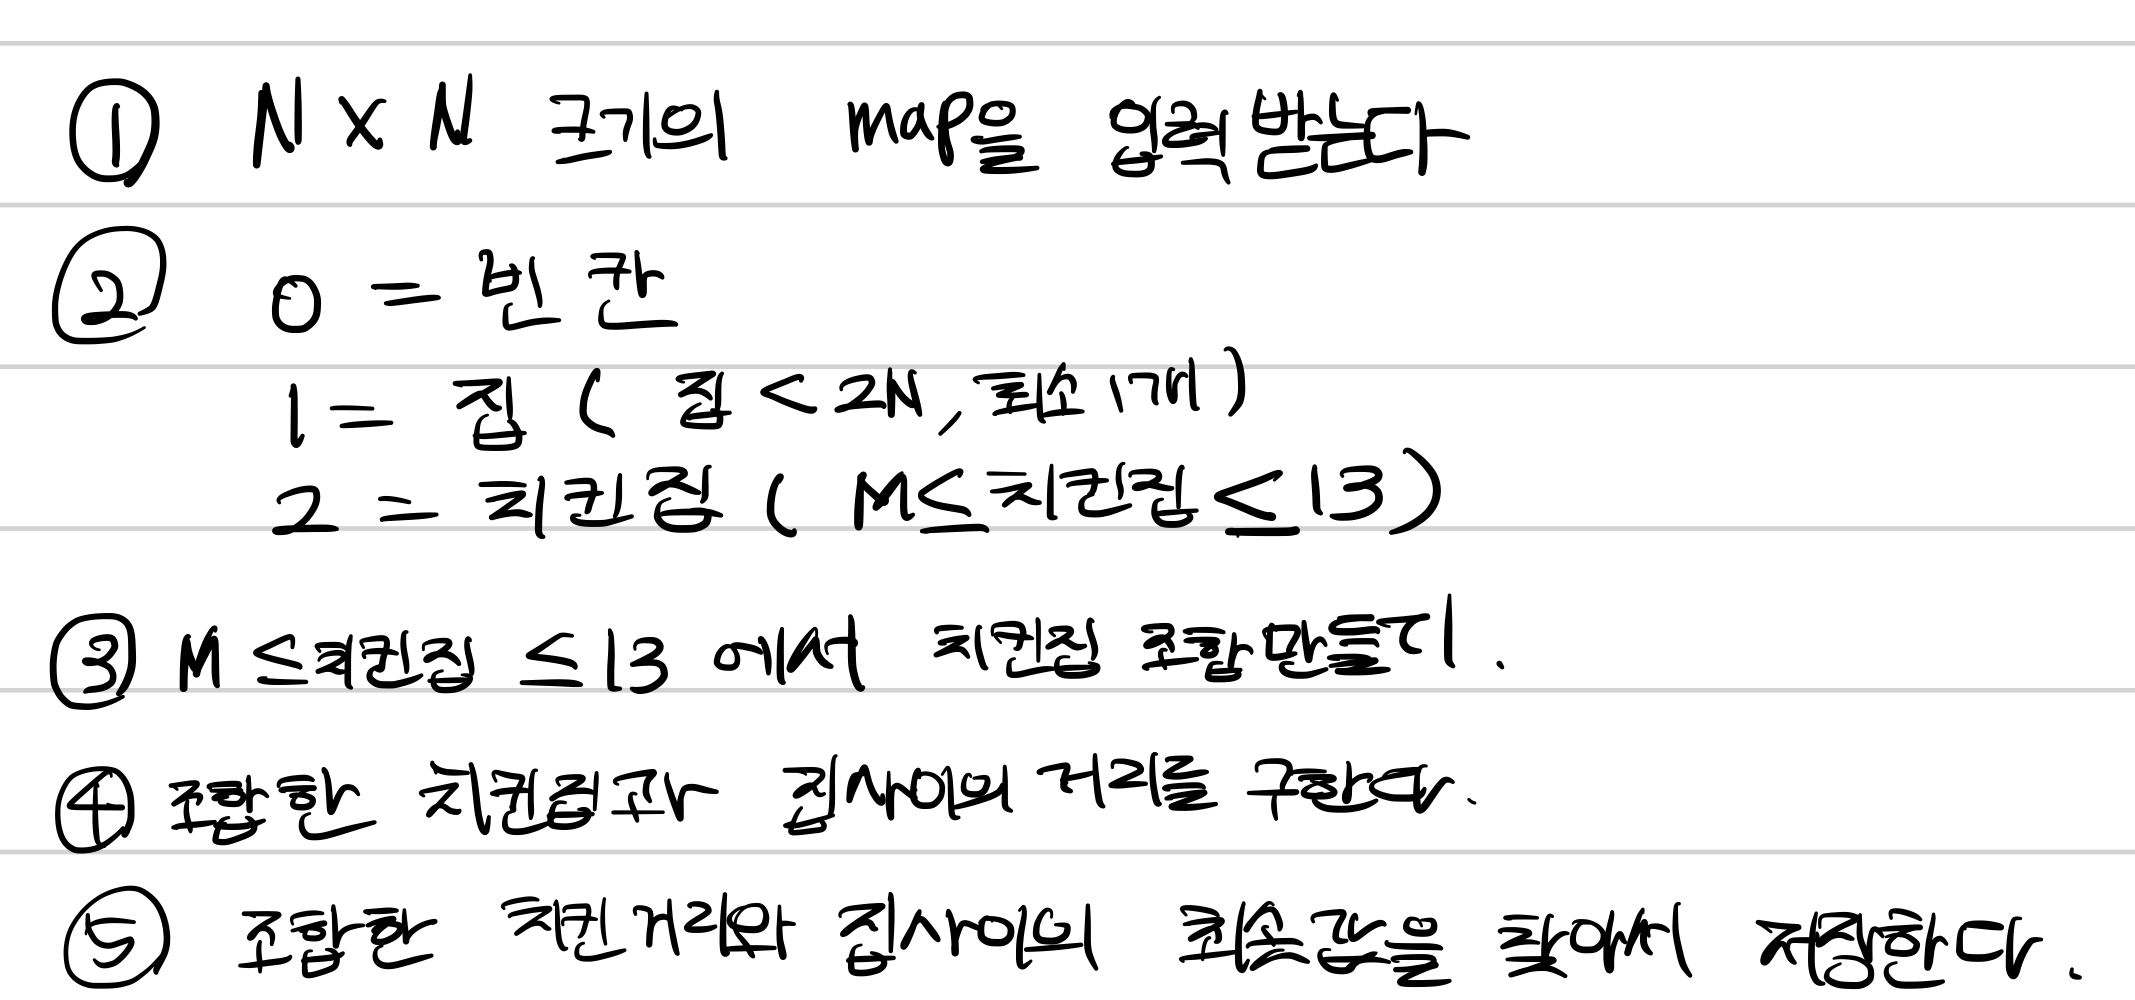 ① N x N 크기의 map을 입력 받는다
② 0 = 빈 칸
1 = 집 ( 집 < 2N, 최소 1개 )
2 = 치킨집 ( M ≤ 치킨집 ≤ 13 )
③ M ≤ 치킨집 ≤ 13 에서 치킨집 조합 만들기.
④ 조합한 치킨집과 집사이의 거리를 구한다.
⑤ 조합한 치킨거리와 집사이의 최소값을 찾아서 저장한다.